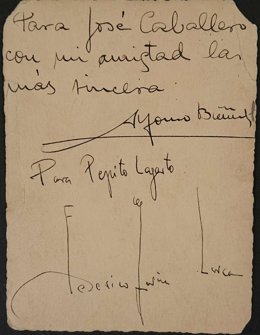 Para José Caballero
con mi amistad la
más sincera
Alfonso Buñuel
Para Pepito Lagarto
Federico García Lorca